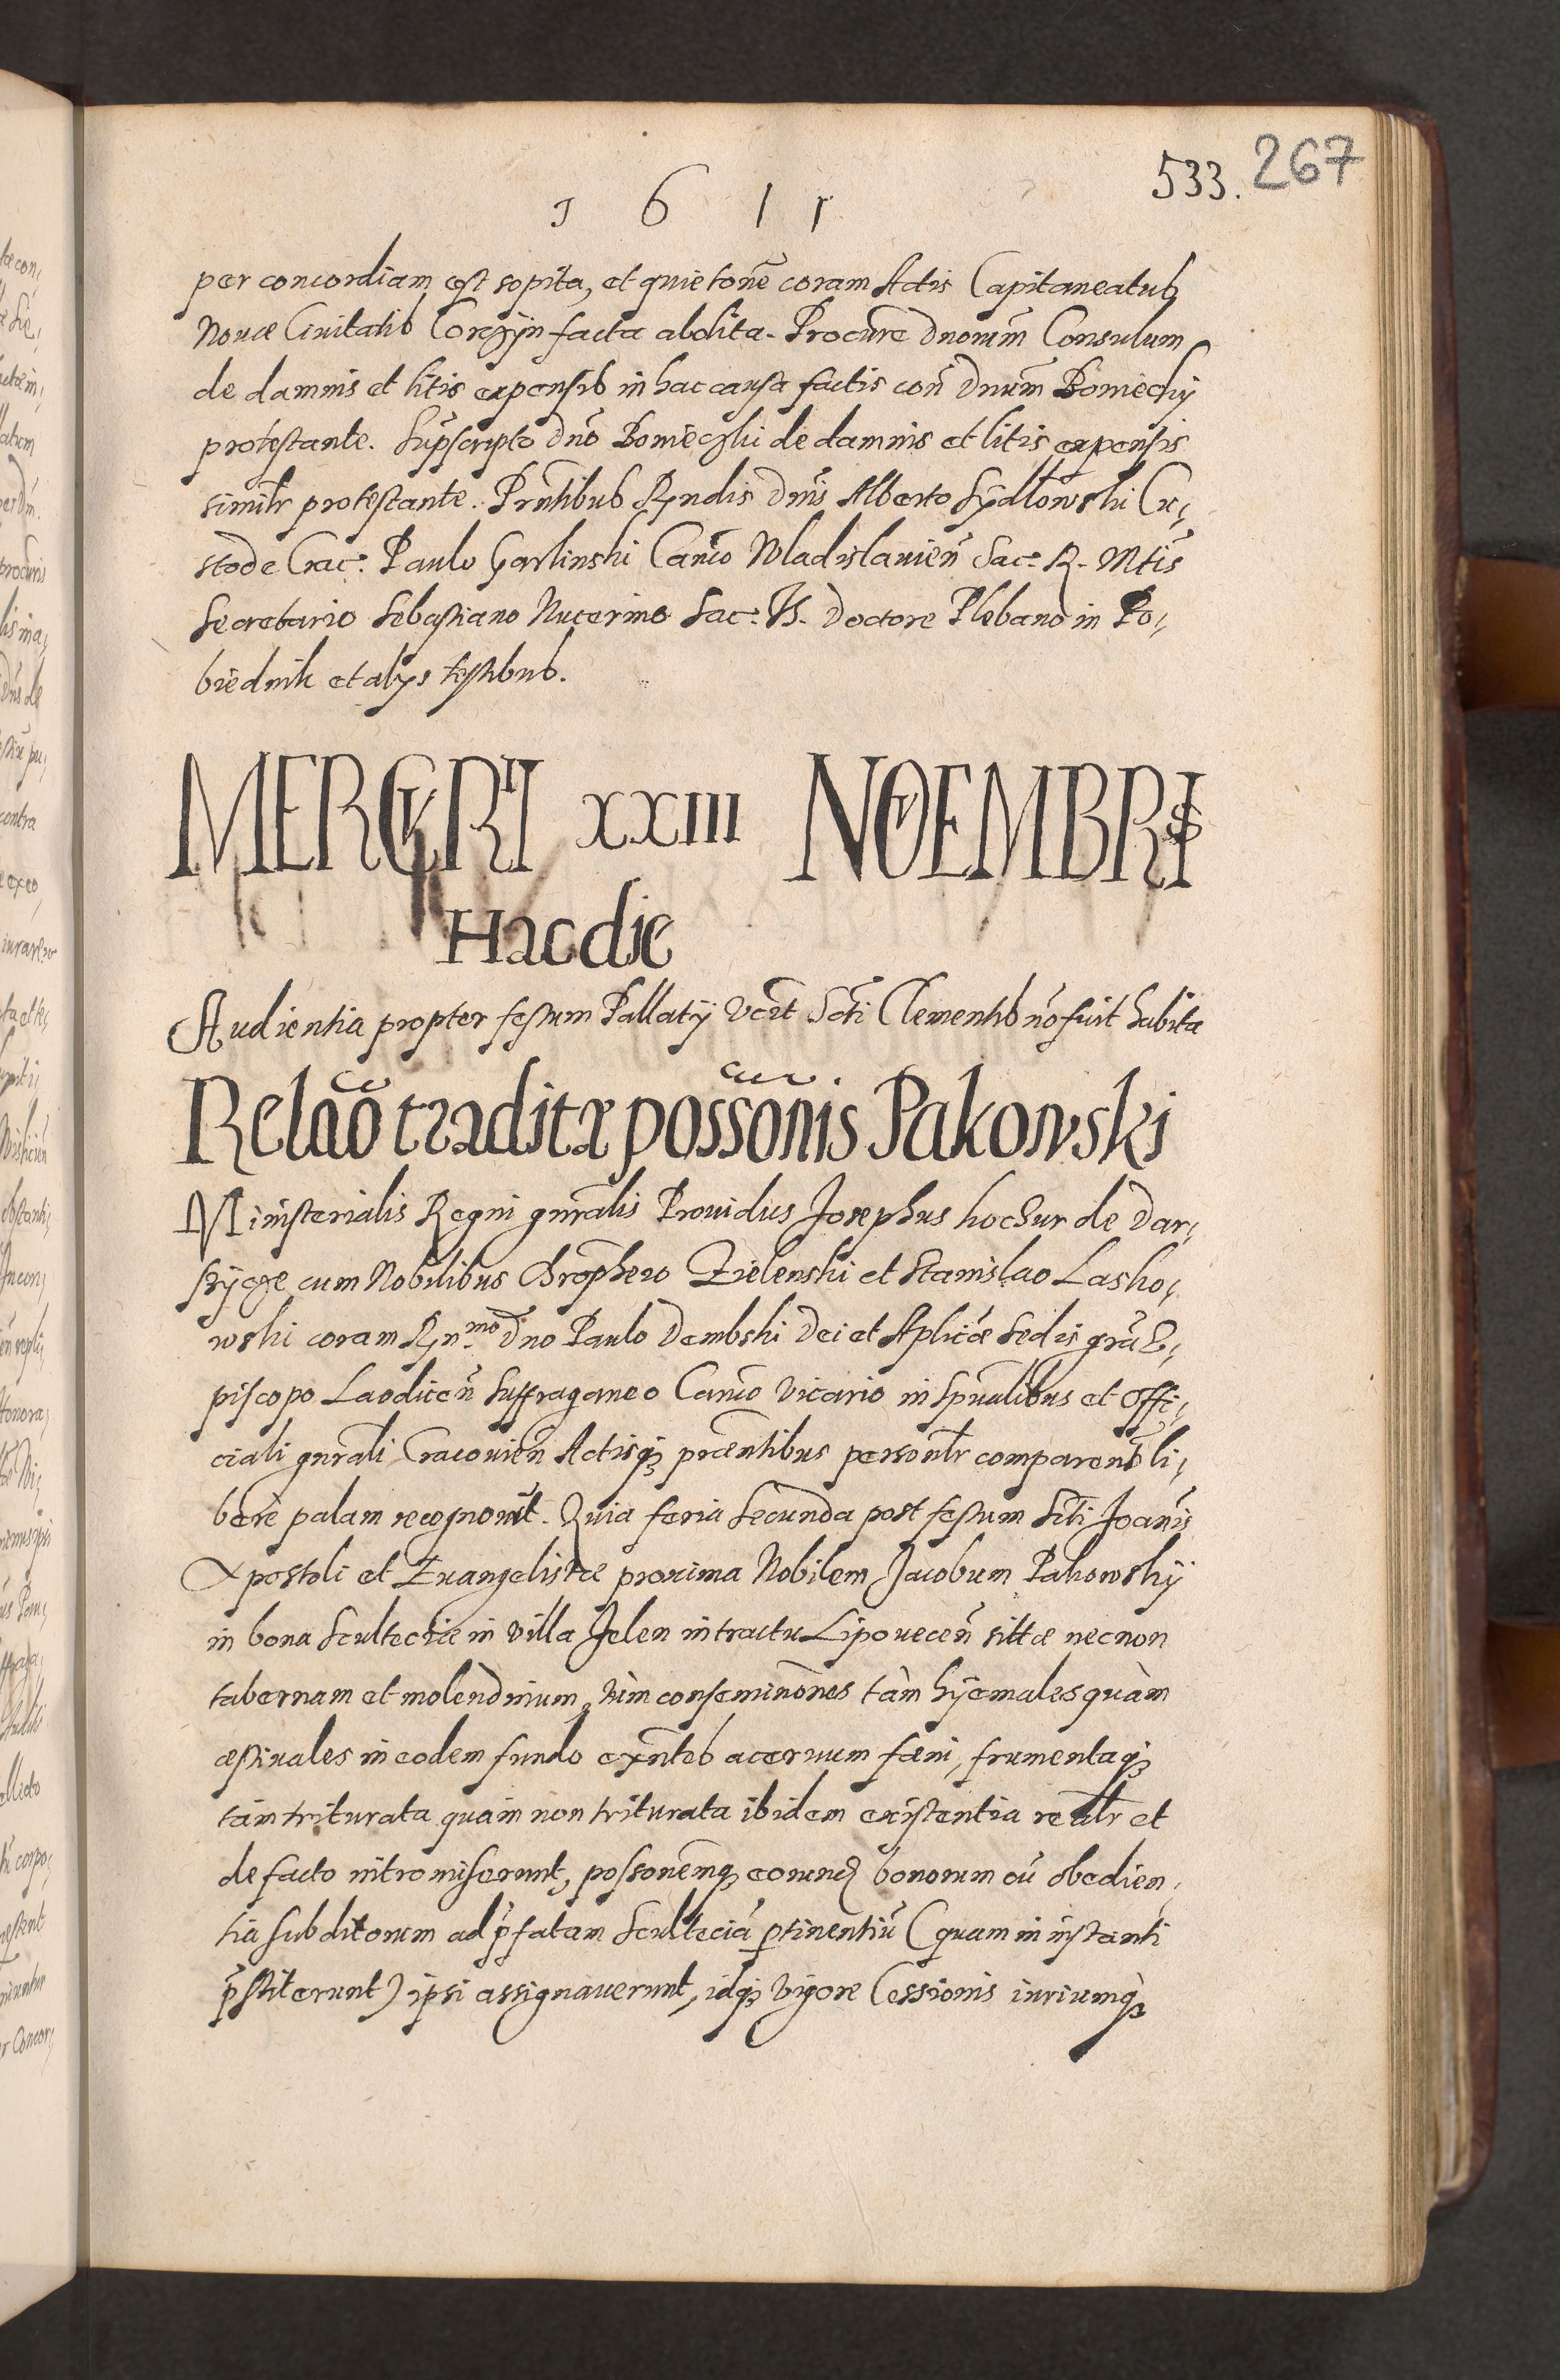 533. 267
1 6 1 1
per concordiam est sopita, et quietonẽ coram Actis Capitaneatus
Novæ Civitatis Corczÿn facta abolita. Procurẽ Dnorum̃ Consulum
de damnis et litis expensis in hac causa factis con̄ Dnum̃ Boniecky
protestante. Supscripto Dno̅ Bonieczki de damnis et litis expensis
similr̃ protestante. Prntibus Rndis Dnis̃ Alberto Sÿdłowski Cu,
stode Crac. Paulo Garlinski Canco̅ Wladislavien̄ Sac. R. Mtis̃
Secretario Sebastiano Nucerino Sac. Th. Doctore Plebano in Po,
biednik et alys testibus.
MERCVRII XXIII NOVEMBRIS
Hac die
Audientia propter festum Pallatÿ vert̃ Scti̅ Clementis no̅ fuit habita
Relão traditæ possõnis Pakowski
Ministerialis Regni gnralis̃ Providus Josephus kochur de Dar,
szÿcze cum Nobilibus Chrophero̅ Zielenski et Stanislao Lasko,
wski coram Rn.mo Dno Paulo Dembski Dei et Aplicæ̃ Sedis gra̅ E,
piscopo Laodicen̄ Suffraganeo Canco̅ Vicario in Spũalibus et Offi,
ciali gnrali̅ Cracovien̄ Actisq; præntibus personlr̃ comparens̃ li,
bere palam recognovit. Quia feria Secunda post festum Scti̅ Joanis̃
Apostoli et Evangelistæ proxima Nobilem Jacobum Pakowskÿ
in bona Scultectiæ in villa Jelen in tractu Lipovecen̄ sittæ necnon
tabernam et molendinum, tùm conseminones̃ tàm hÿemales quàm
æstivales in eodem fundo exn̄tes acervum fœni, frumentaq;
tàm triturata quàm non triturata ibidem existentia realr̃ et
de facto intromiserunt, possonemq̃; eorund bonorum cu̅ obedien,
tia subditorum ad p̃fatam Scultecia̅ ptinentiu̅ (quam in instanti
p̃stiterunt) ipsi assignaverunt, idq; vigore Cessionis iuriumq;